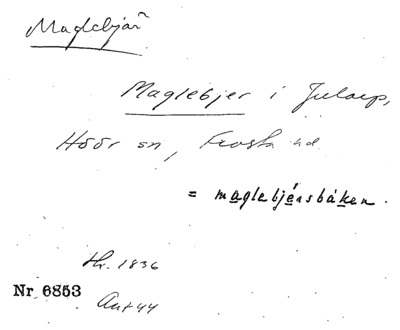 Maglebjär
Maglebjer i Jularp,
Höör sn, Frosta hd.
= maglebjérsbáken.
hr. 1836
Nr 6853
Ant 44